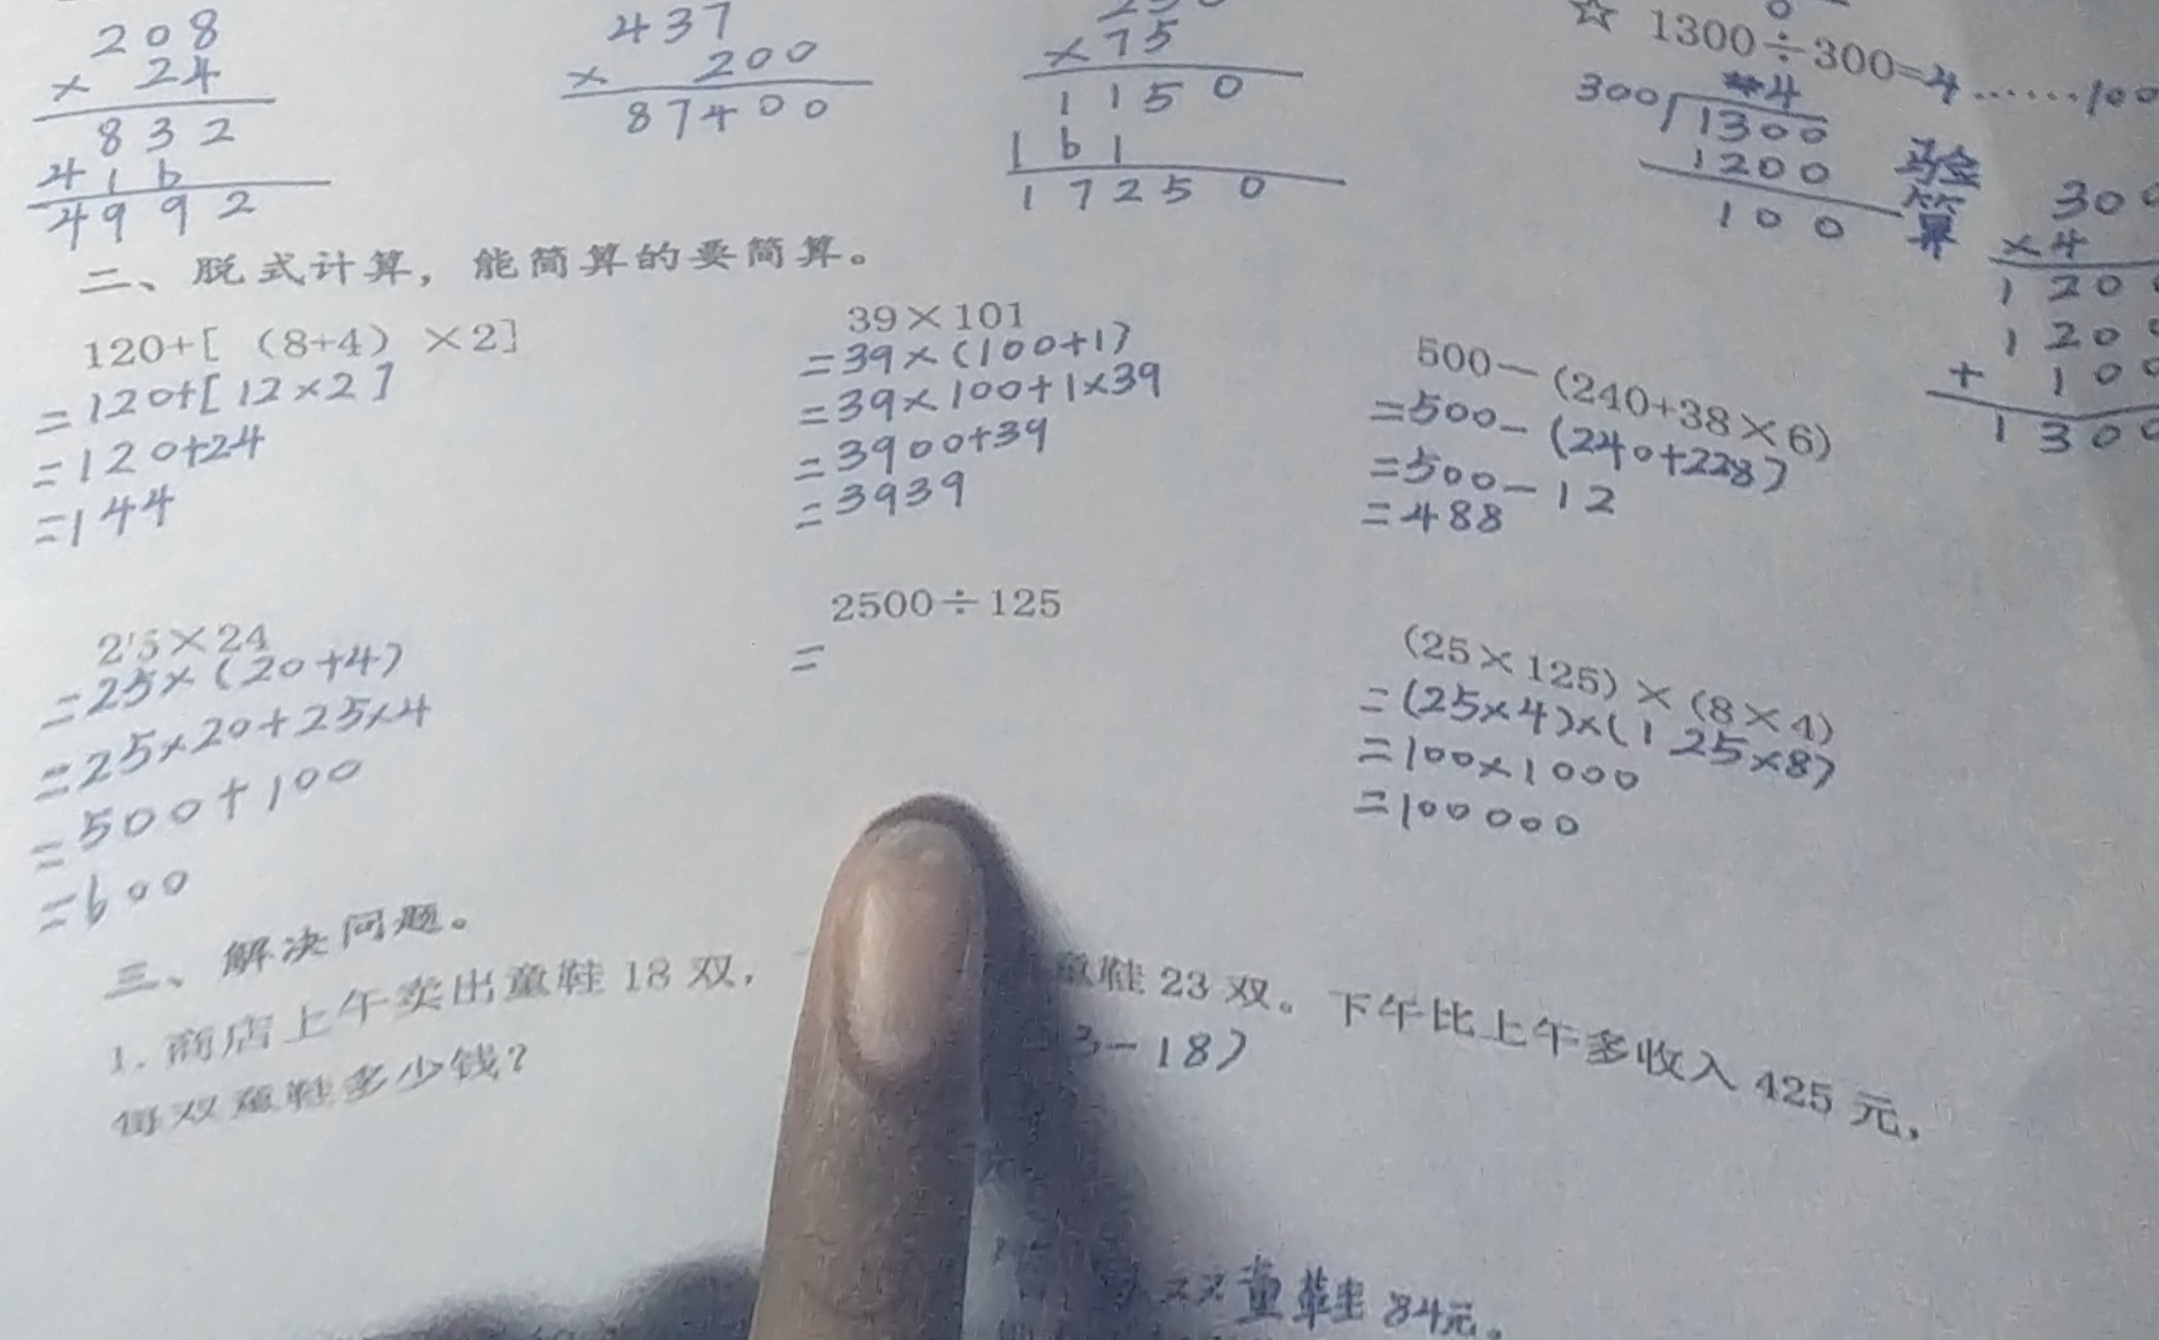 208
× 24
832
416
4992
437
× 200
87400
× 75
1150
161
17250
☆ 1300÷300=4……100
4
300 1300
1200
100
验算
300
×4
1200
1200
+ 100
1300
二、脱式计算，能简算的要简算。
120+[（8+4）×2]
=120+[12×2]
=120+24
=144
39×101
=39×(100+1)
=39×100+1×39
=3900+39
=3939
500－(240+38×6)
=500-(240+228)
=500-12
=488
25×24
=25×(20+4)
=25×20+25×4
=500+100
=600
2500÷125
=
(25×125)×(8×4)
=(25×4)×(125×8)
=100×1000
=100000
三、解决问题。
1.商店上午卖出童鞋 18 双，童鞋 23 双。下午比上午多收入 425 元，
每双童鞋多少钱？
3-18)
双童鞋84元。